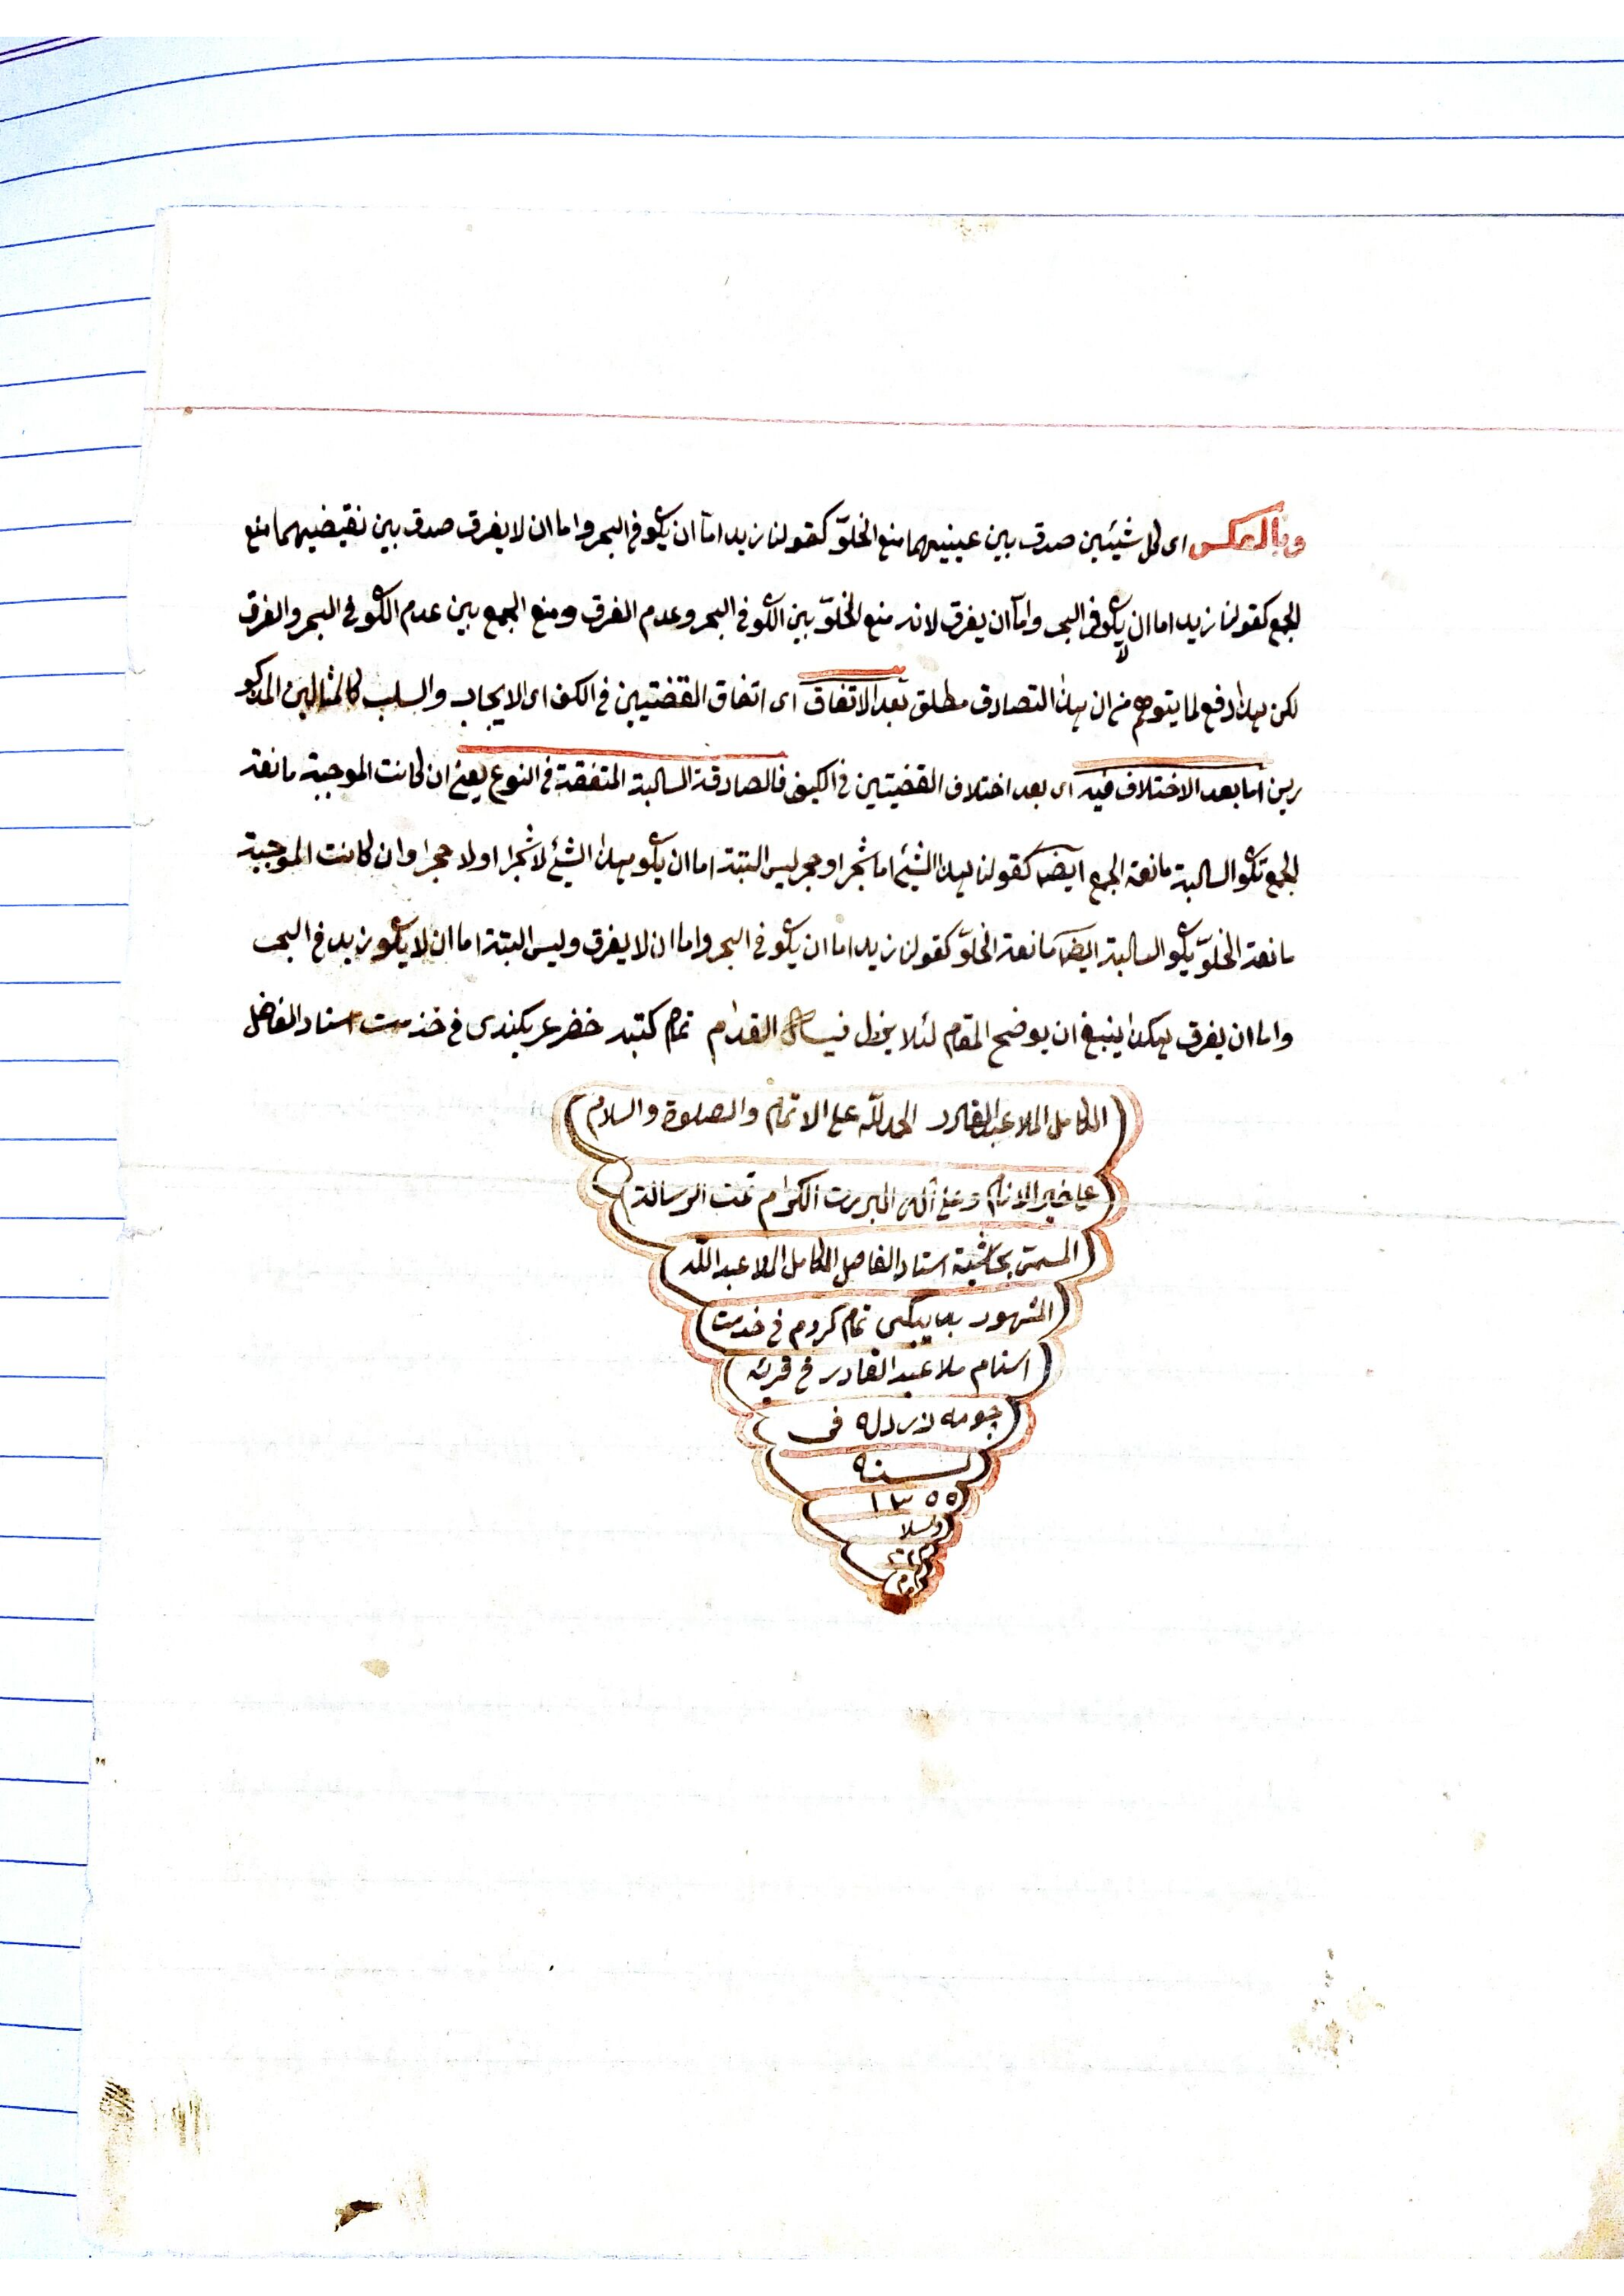 وبالعكس اى كل شيئين صدق بين عينيهما منع الخلوّ كقولنا زيد امّا ان يكو فى البحر واما ان لا يغرق صدق بين نقيضيهما منع
الجمع كقولنا زيد اما ان لا يكو فى البحر وامّا ان يغرق لانه منع الخلوّ بين الكو فى البحر وعدم الغرق ومنع الجمع بين عدم الكو فى البحر والغرق
لكن هذا دفع لما يتوهم من ان هذا التصادق مطلق بعد الاتفاق اى اتفاق القضتيين فى الكيف اى الايجاب والسلب كالمثالين المذكو
رين اما بعد الاختلاف فيه اى بعد اختلاف القضيتين فى الكيف فالصادقة السالبة المتفقة فى النوع يعنى ان كانت الموجبة مانعة
الجمع تكو السالبة مانعة الجمع ايضا كقولنا هذا الشيئ اما شجر او حجر ليس البتة اما ان يكو هذا الشيئ لا شجرا او لا حجرا وان كانت الموجبة
مانعة الخلوّ يكو السالبة ايضا مانعة الخلوّ كقولنا زيد اما ان يكو فى البحر واما ان لا يغرق وليس البتة اما ان لا يكو زيد فى البحر
واما ان يغرق هكذا ينبغى ان يوضح المقام لئلا يزل فيه القدام تمام كتبه خضر عربكندى فى خذمت استاد الفاضل
الكامل الملا عبد القادر الحمد للّه على الاتمام والصلوة والسلام
على خير الانام وعلى آله البررت الكرام تمت الرسالة
المسمى بحاشية استاد الفاضل الكامل الملا عبد اللّه
المشهور تمام كردم فى خدمت
استادم ملا عبد القادر فى قرية
جومه زرده فى
سنه
١٣٥٥
والسلا